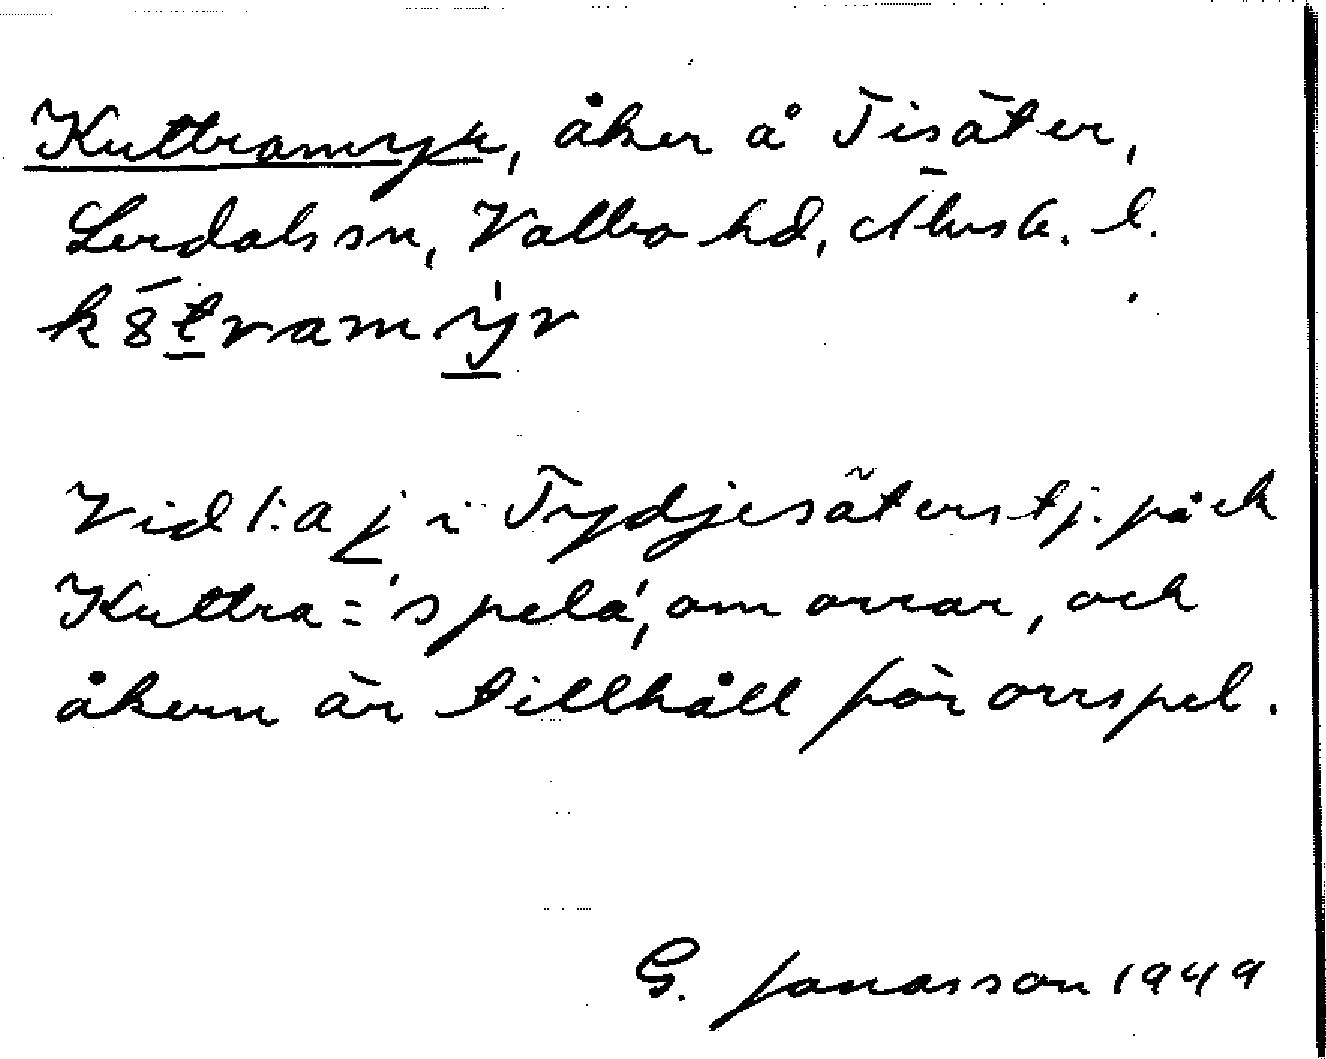 Kuttramyr, åker å Tisäter,
Lerdals sn, Valbo hd, Älvsb. l.
k8́tramy̍r
Vid 1:a j i Trydjesäterstj. på ek
Kuttra = 'spela', om orrar, och
åkern är tillhåll för orrspel.
G. Jonasson 1949